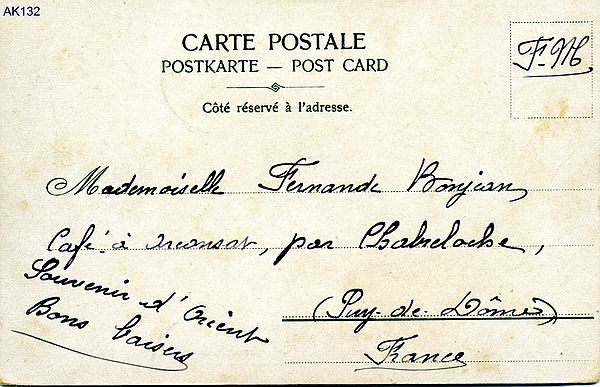 AK132
CARTE POSTALE
POSTKARTE — POST CARD
Côté réservé à l'adresse.
F.M
Mademoiselle Fernande Bonjean
Café à Arconsat, par Chabreloche,
(Puy-de-Dôme)
France
Souvenir d'Orient
Bons baisers